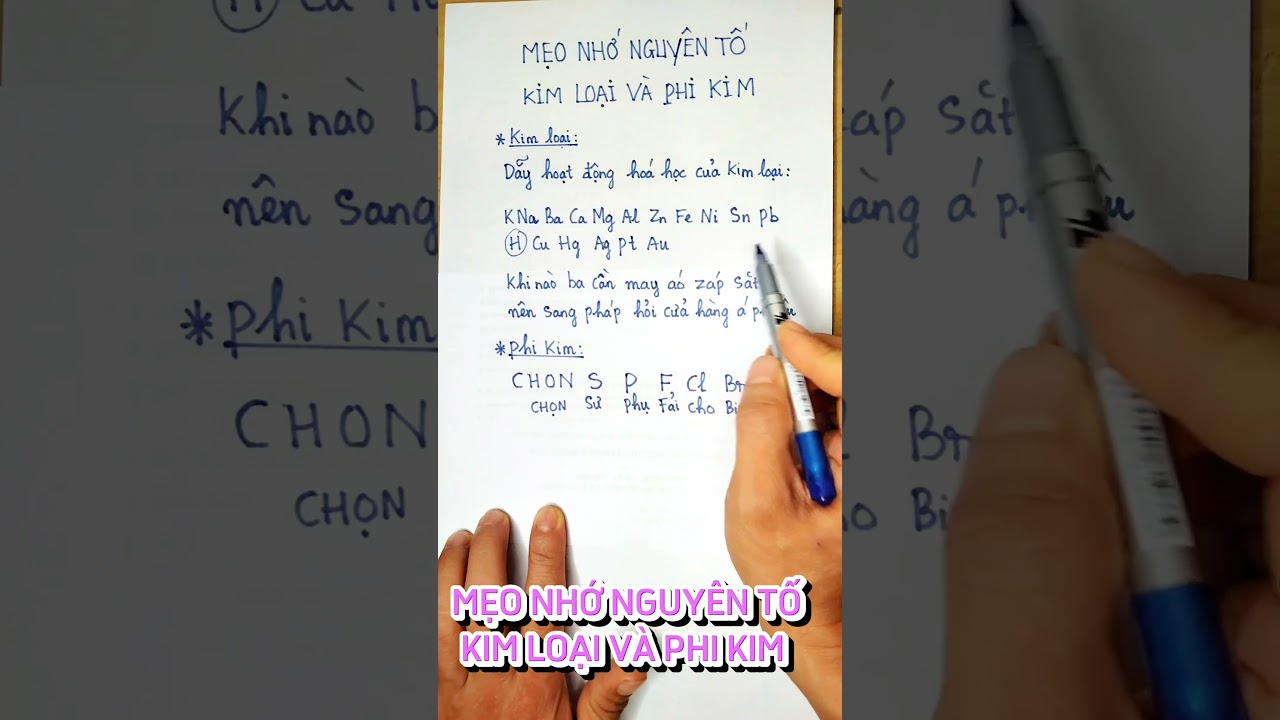 MẸO NHỚ NGUYÊN TỐ
KIM LOẠI VÀ PHI KIM
* Kim loại:
Dãy hoạt động hoá học của kim loại:
K Na Ba Ca Mg Al Zn Fe Ni Sn Pb
H Cu Hg Ag Pt Au
Khi nào ba cần may aó záp sắt
nên sang pháp hỏi cửa hàng á phi âu
* Phi Kim:
CHON S P F Cl Br
CHỌN Sư Phụ Fải cho Bi
MẸO NHỚ NGUYÊN TỐ
KIM LOẠI VÀ PHI KIM